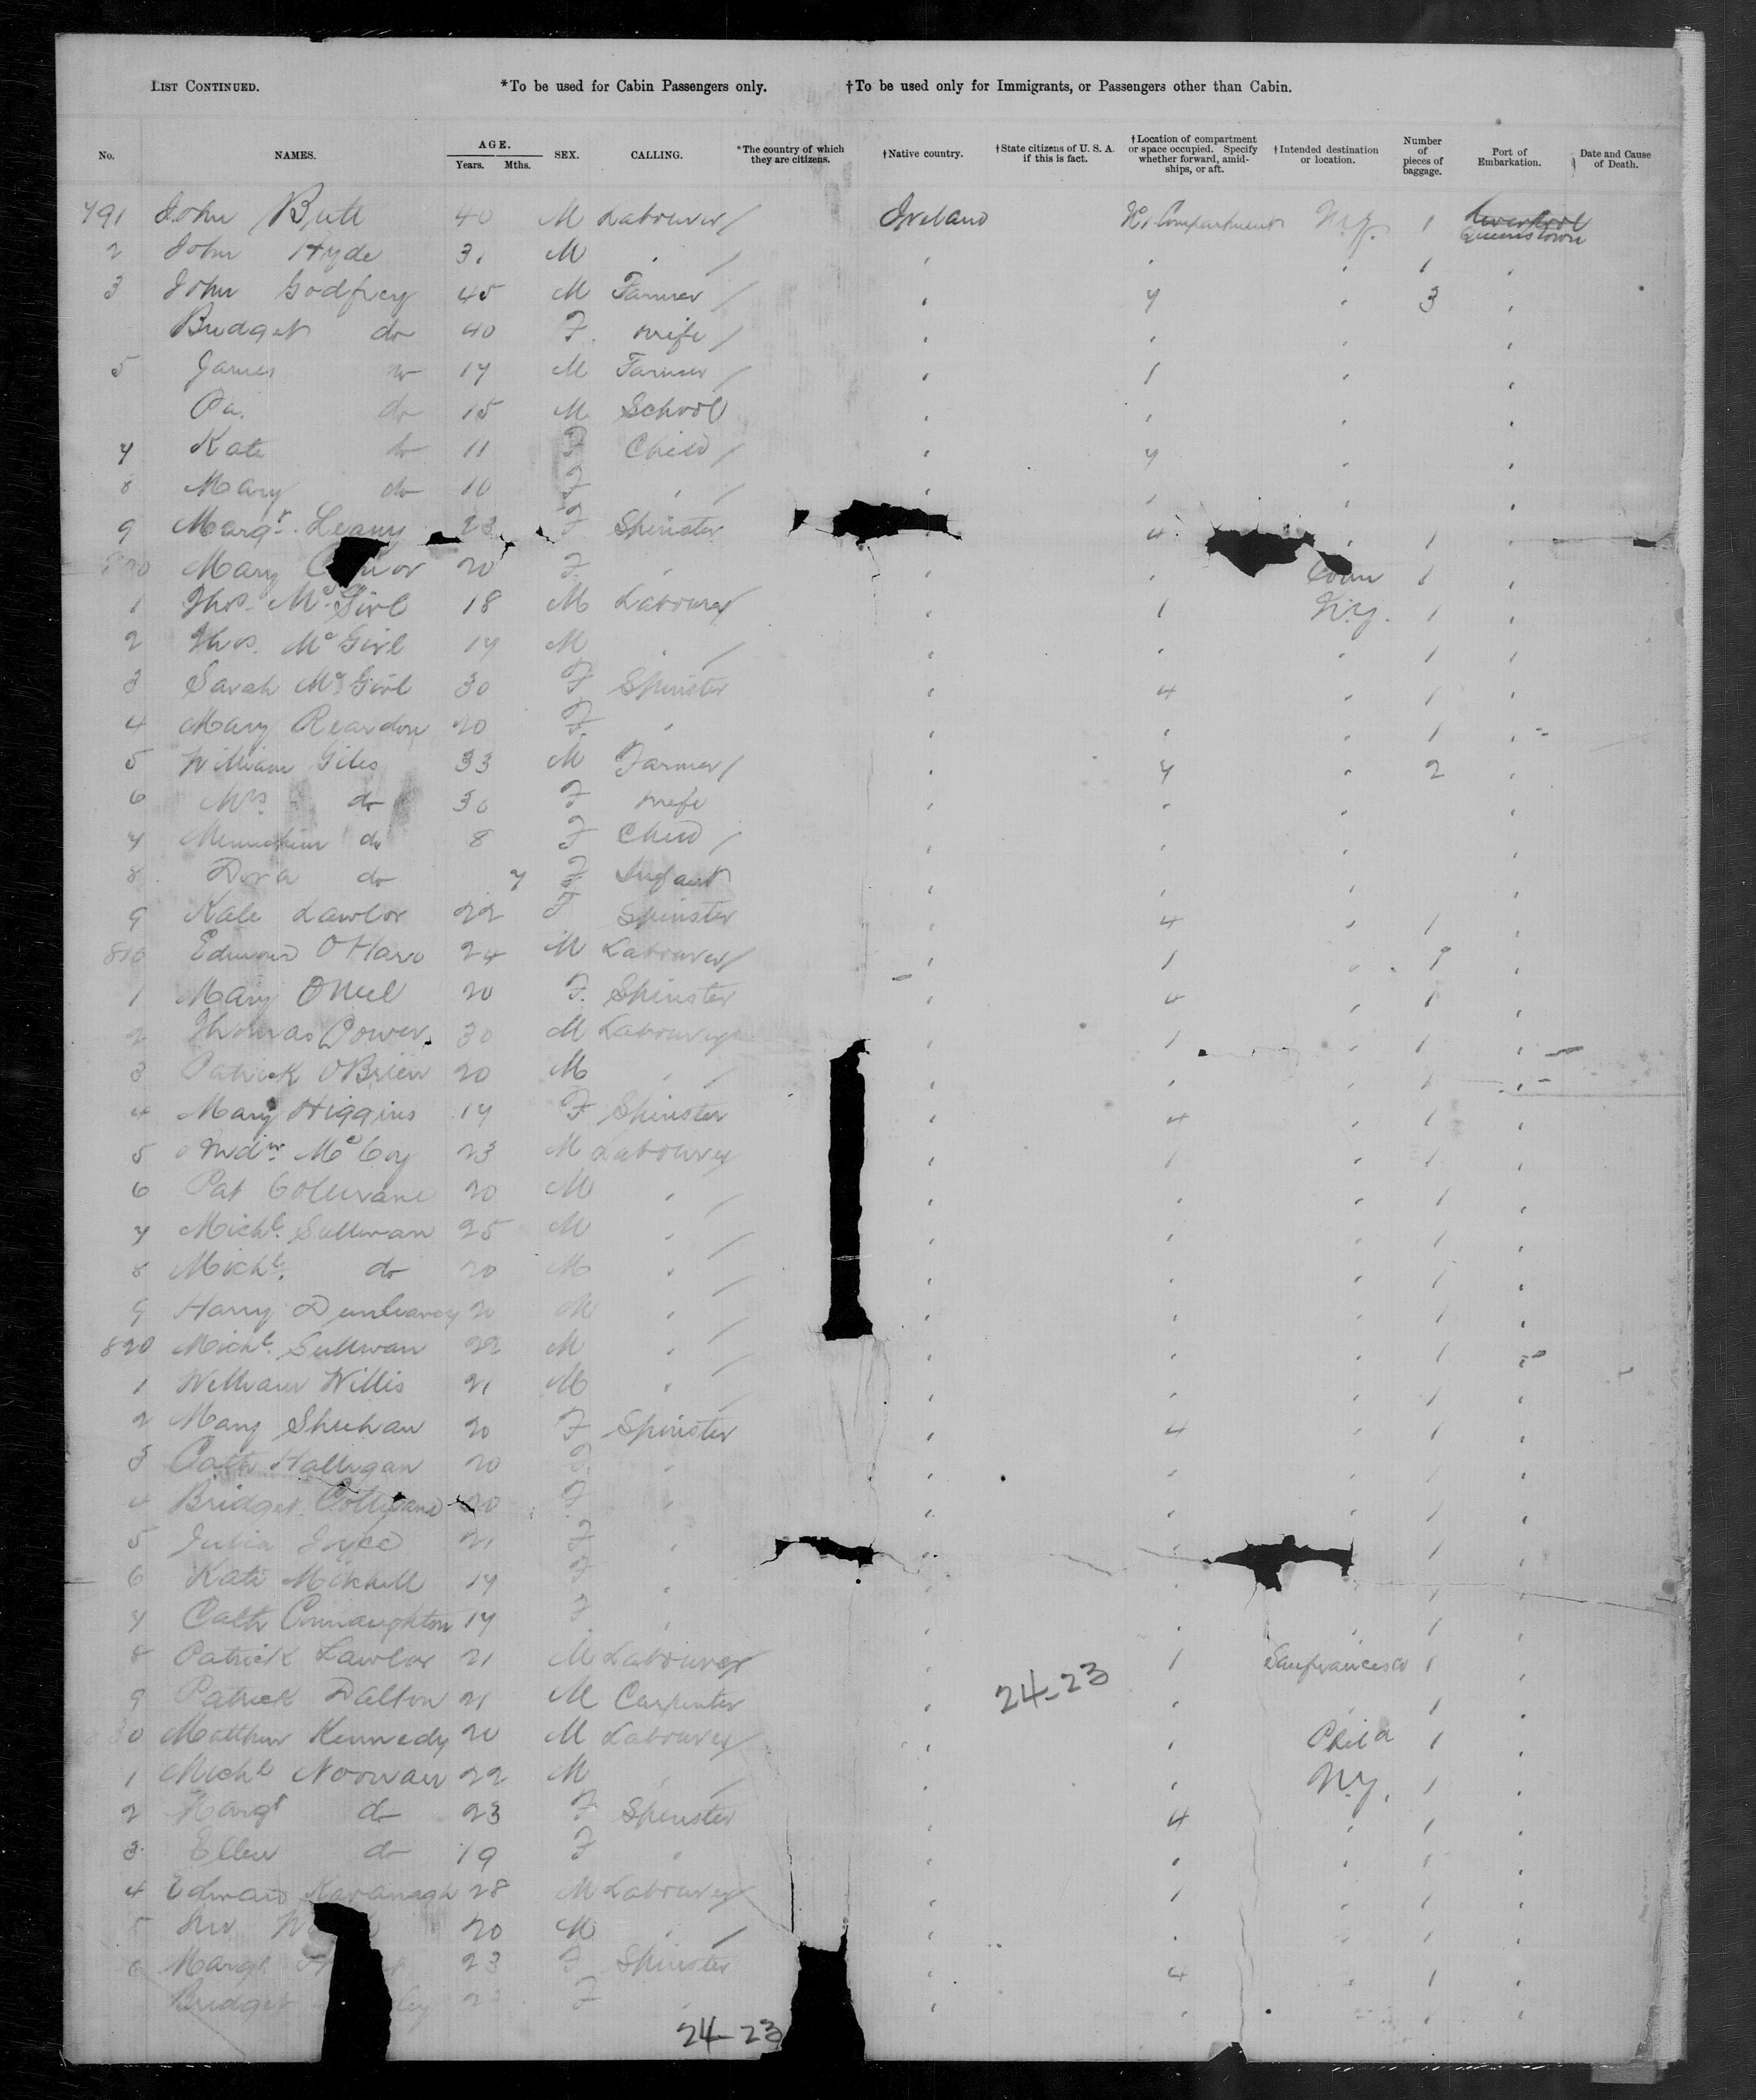 LIST CONTINUED. *To be used for Cabin Passengers only. †To be used only for Immigrants, or Passengers other than Cabin.
No. NAMES. AGE. Years. Mths. SEX. CALLING. *The country of which they are citizens. †Native country. †State citizens of U. S. A. if this is fact. †Location of compartment or space occupied. Specify whether forward, amidships, or aft. †Intended destination or location. Number of pieces of baggage. Port of Embarkation. Date and Cause of Death.
791 John Butt 40 M Labourer / Ireland No 1 Compartment N.Y. 1 Liverpool Queenstown
2 John Hyde 31 M " / " " " 1 "
3 John Godfrey 45 M Farmer / " 7 " 3 "
Bridget do 40 F. wife / " " " "
5 James do 17 M Farmer / " 1 " "
Pa. do 15 M School " " " "
7 Kate do 11 F Child / " 7 " "
8 Mary do 10 F " / " " " "
9 Margt. Leany 23 F Spinster 4 " 1 "
Mary 20 F. " " " Conn 1 "
1 Thos. McGirl 18 M Labourer " 1 N.Y. 1 "
2 Thos. McGirl 17 M " / " " " 1 "
3 Sarah McGirl 30 F Spinster " 4 " 1 "
4 Mary Reardon 20 F. " " " " 1 "
5 William Giles 33 M Farmer / " 7 " 2 "
6 Mrs do 30 F wife " " " "
7 do 8 F Child / " " " "
8 Dora do 7 F Infant " " " "
9 Kate Lawlor 22 F Spinster " 4 " 1 "
810 Edmund O'Hara 24 M Labourer / " 1 " 1 "
1 Mary ONeil 20 F. Spinster " 4 " 1 "
2 Thomas Power 30 M Labourer " 1 " 1 "
3 Patrick OBrien 20 M " / " " " 1 "
4 Mary Higgins 17 F Spinster " 4 " 1 "
5 Andw. McCoy 23 M Labourer " 1 " 1 "
6 Pat 20 M " / " " " 1 "
7 Michl. Sullivan 25 M " / " " " 1 "
8 Michl. do 20 M " / " " " 1 "
9 Harry Dunleavey 20 M " / " " " 1 "
820 Michl. Sullivan 22 M " / " " " 1 "
1 William Willis 21 M " / " " " 1 "
2 Mary Sheehan 20 F Spinster " 4 " 1 "
3 Cath Halligan 20 F. " " " " 1 "
4 Bridget 20 F " " " " 1 "
5 Julia Joyce 21 F " " " 1 "
6 Kate 17 F " " " 1 "
7 Cath Connaughton 17 F " " " " 1 "
8 Patrick Lawlor 21 M Labourer " 1 Sanfrancisco 1 "
9 Patrick Dalton 21 M Carpenter " 24-23 " " 1 "
30 Matthew Kennedy 20 M Labourer " " Phila 1 "
1 Michl Noonan 22 M " / " " N.Y. 1 "
2 Margt do 23 F Spinster " 4 " 1 "
3 Ellen do 19 F " " " " 1 "
4 Edward Kavanagh 28 M Labourer " 1 " 1 "
5 20 M " / " " " 1 "
6 Margt 23 F Spinster " 4 " 1 "
Bridget F " " " 1 "
24-23